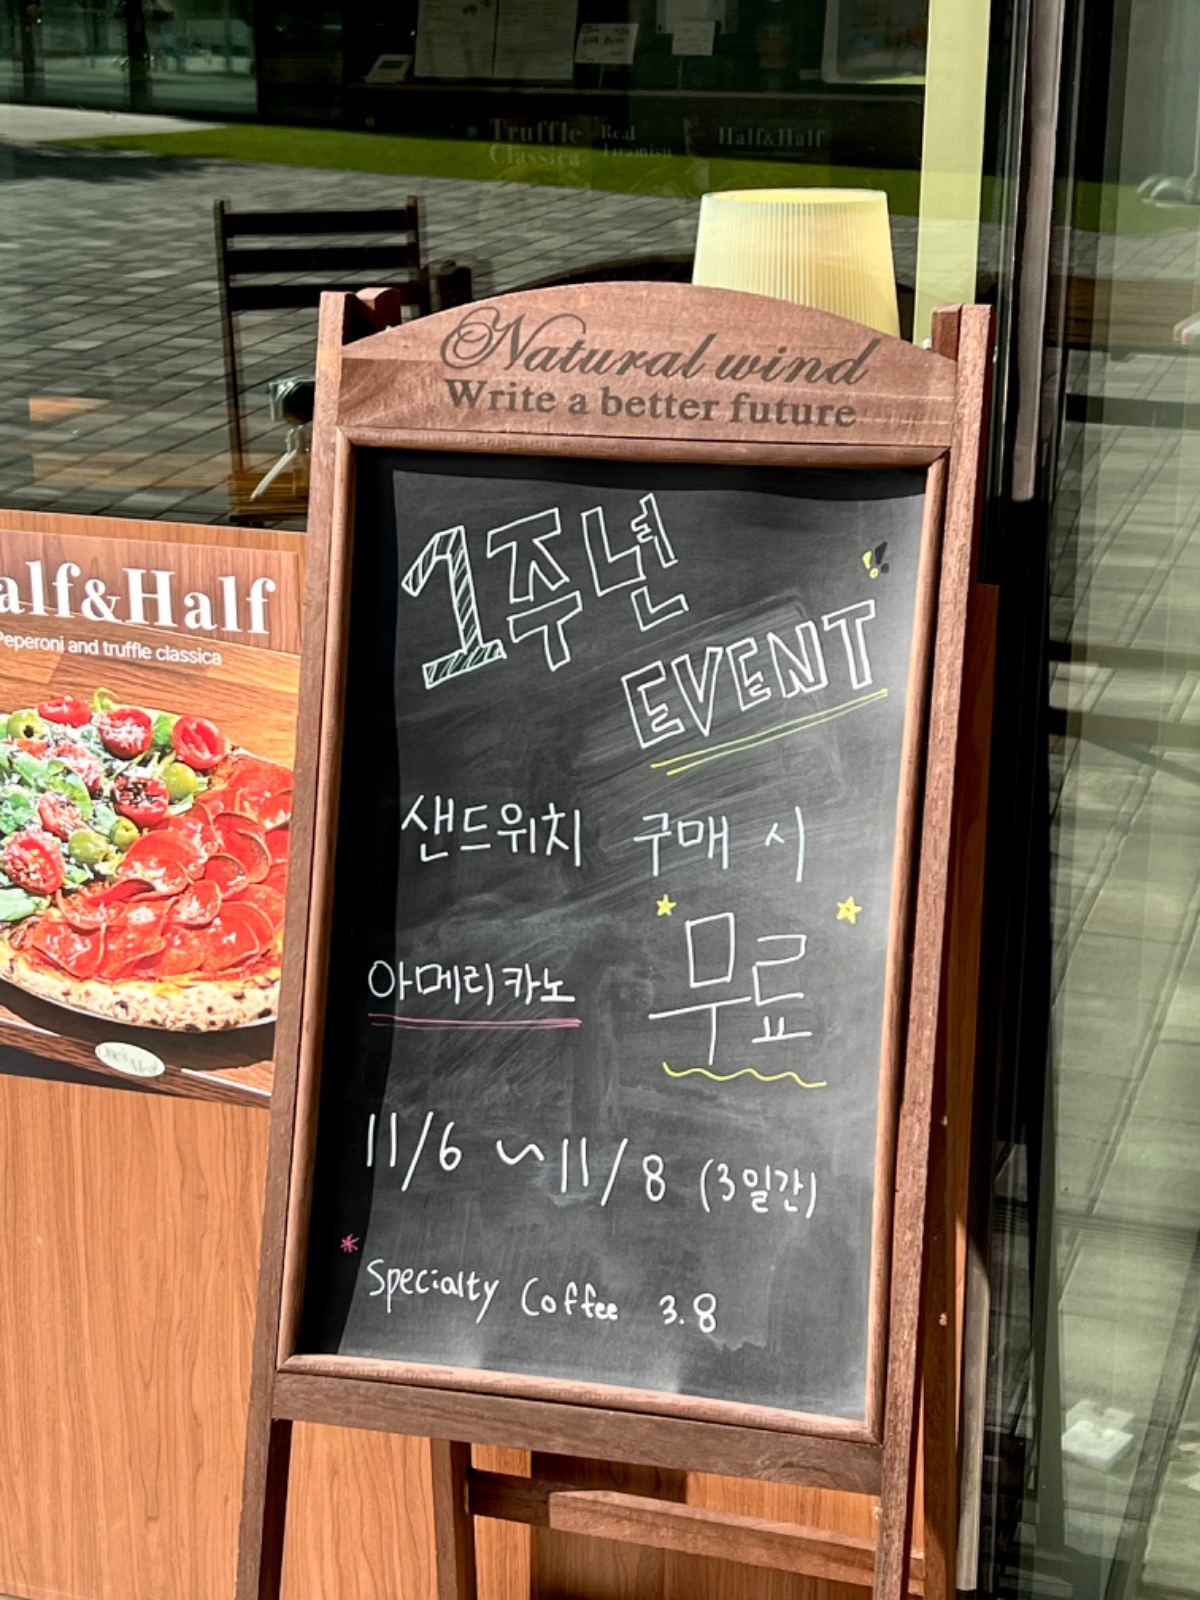 Truffle
Classica
Real
Tiramisu
Half&Half
Natural wind
Write a better future
1주년
EVENT
샌드위치 구매 시
아메리카노 무료
11/6 ~ 11/8 (3일간)
* Specialty Coffee 3.8
alf&Half
Peperoni and truffle classica
One's Meal